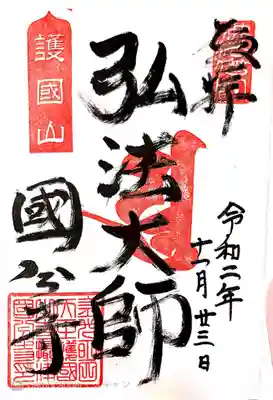 奉拝
令和二年
十一月廿三日
弘法大師
護國山
國分寺